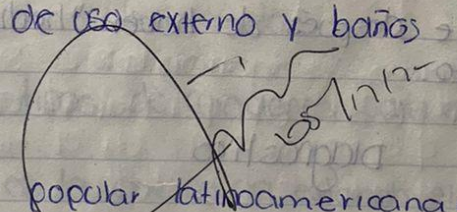 de uso externo y baños
popular latinoamericana